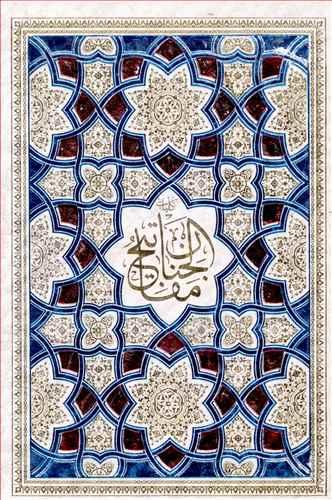 کلیات
مفاتیح الجنان